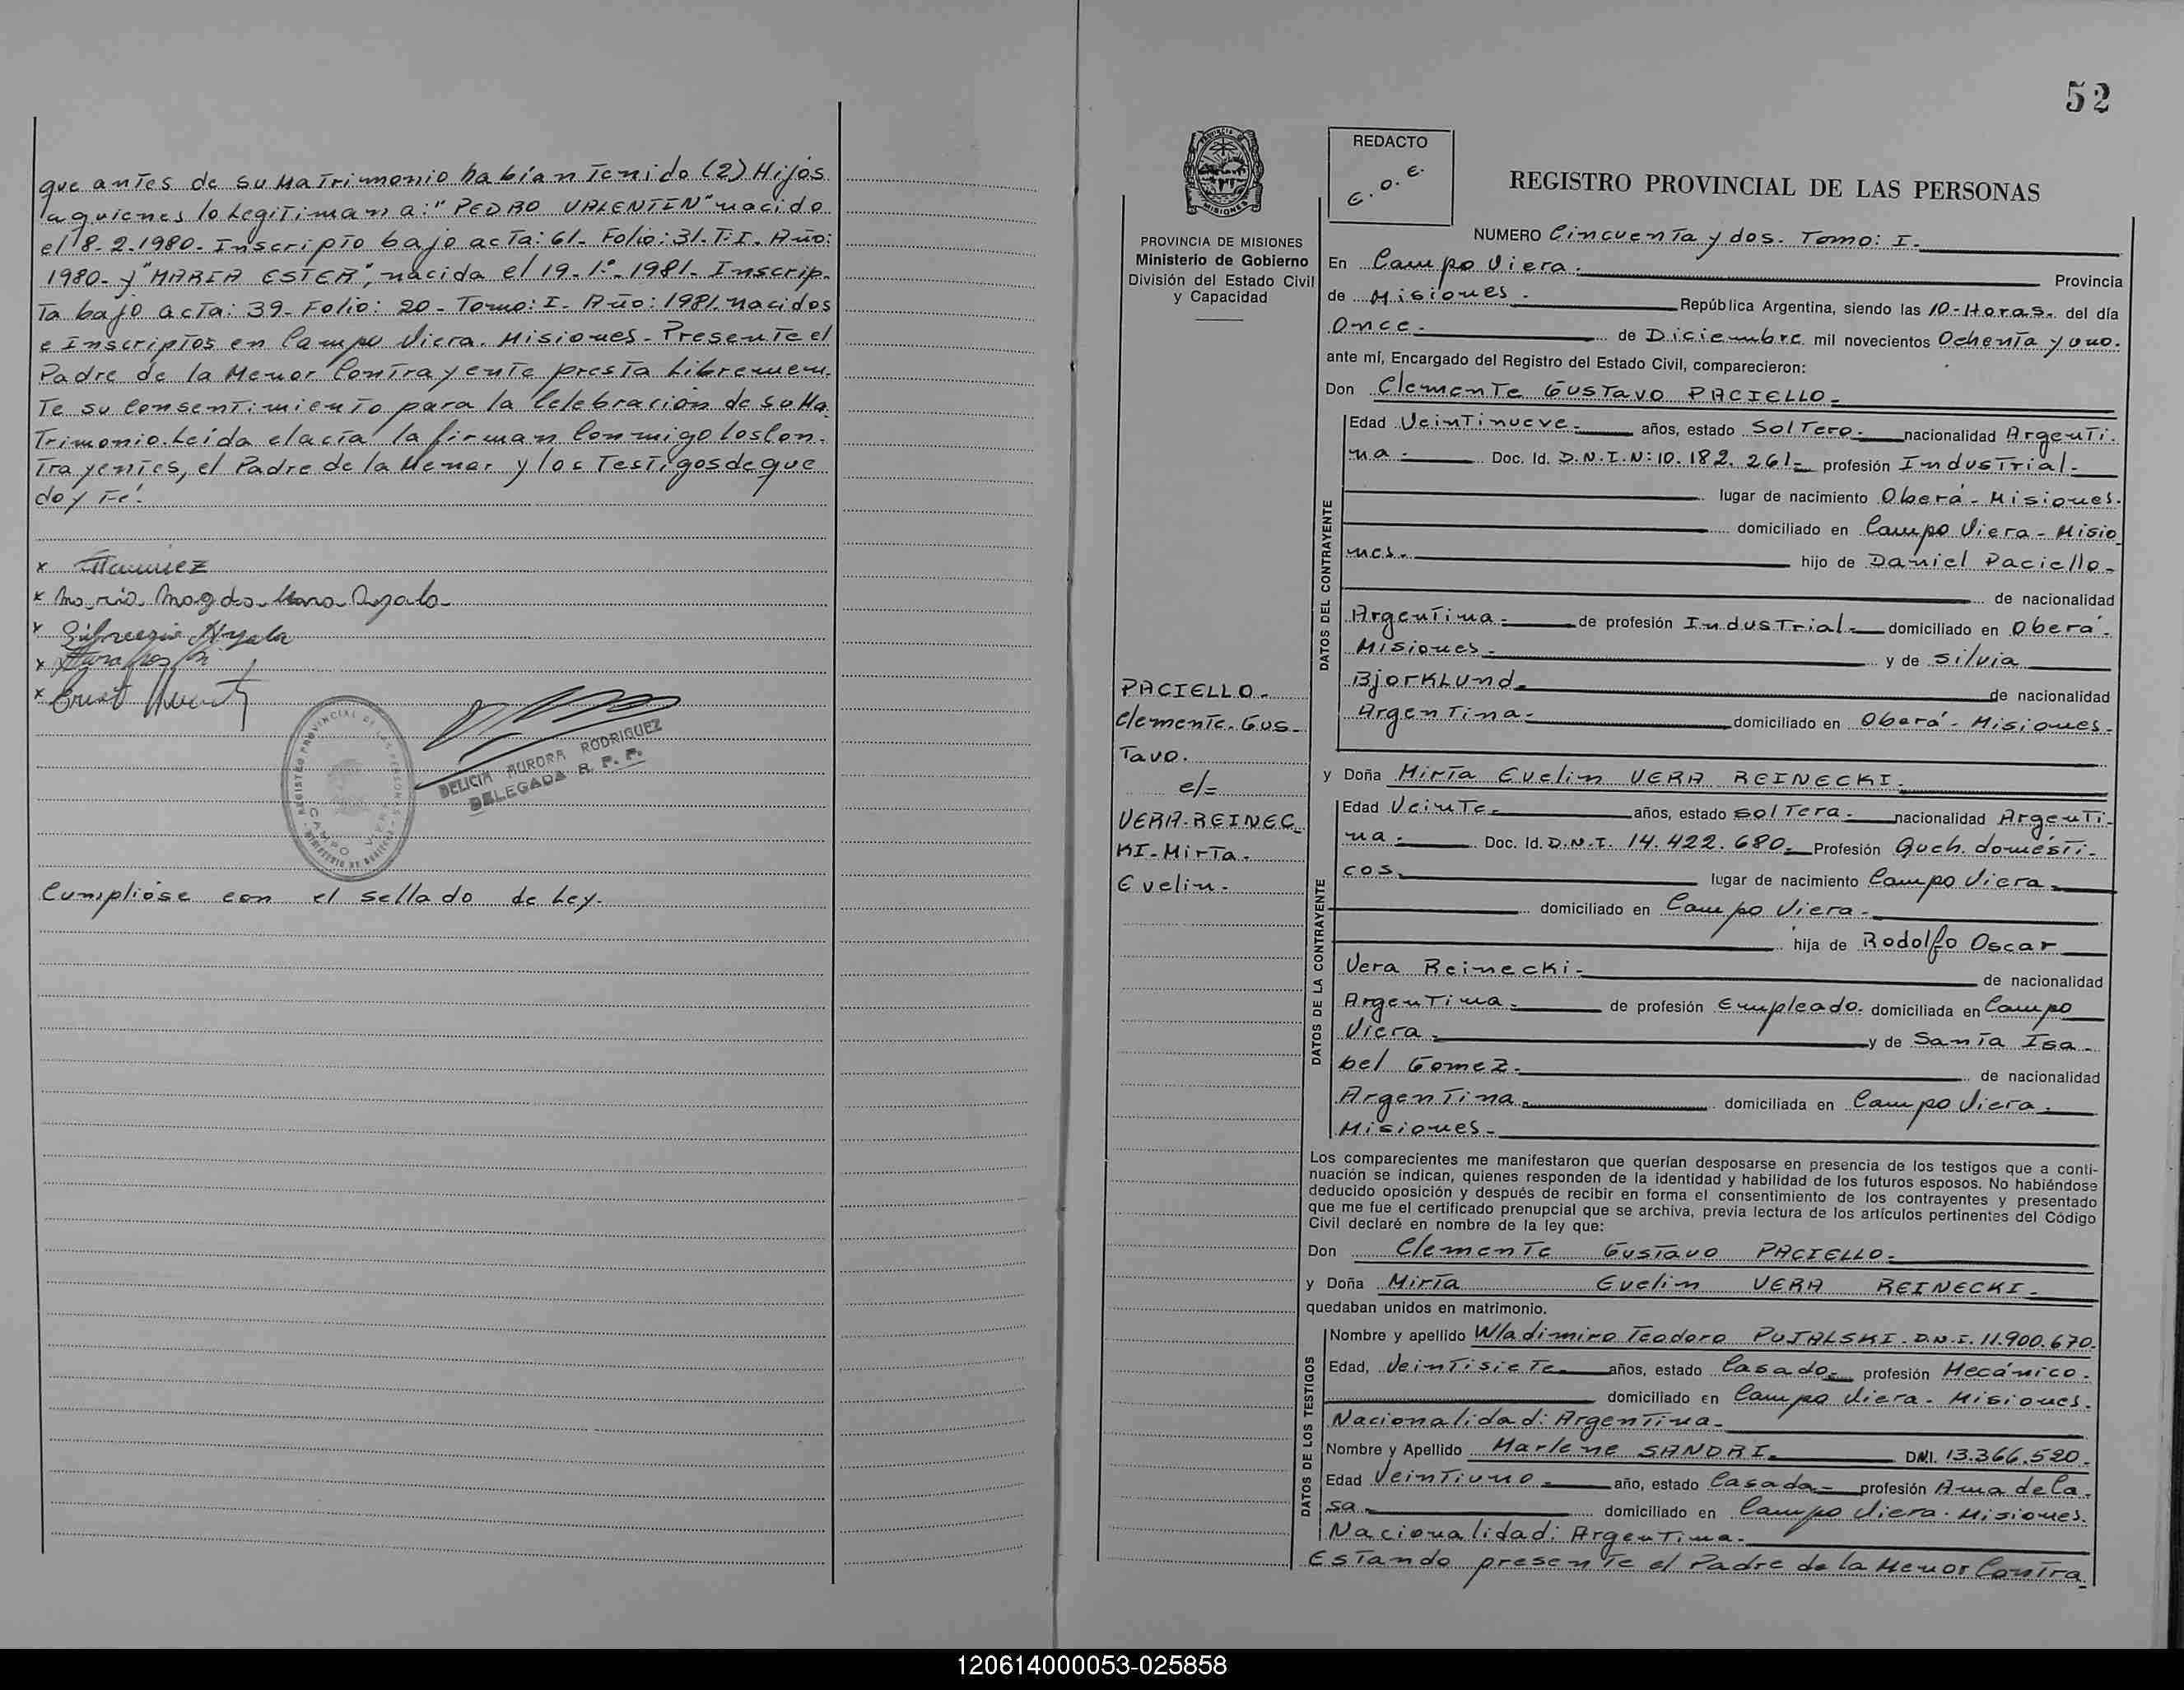 que antes de su Matrimonio habían Tenido (2) Hijos
a quienes lo Legitiman a: "PEDRO VALENTIN" nacido
el 8-2-1980- Inscripto bajo acta: 61- Folio: 31- T: I- Año:
1980- y "MARIA ESTER", nacida el 19-1º-1981- Inscrip-
Ta bajo acta: 39- Folio: 20- Tomo: I- Año: 1981. nacidos
e Inscriptos en Campo Viera. Misiones- Presente el
Padre de la Menor Contrayente presta Libremen-
Te su Consentimiento para la Celebración de su Ma
Trimonio. Leída el acta la firman Conmigo los Con-
Trayentes, el Padre de la Menor y los Testigos de que
doy Fe:
x
x Maria Magdalena Ayala
x Ayala
x
x
REGISTRO PROVINCIAL DE LAS PERSONAS
CAMPO VIERA
DELICIA AURORA RODRIGUEZ
DELEGADA R. P. P.
Cumplióse con el sellado de Ley.
52
REDACTO
E. O. E.
REGISTRO PROVINCIAL DE LAS PERSONAS
PROVINCIA DE MISIONES
Ministerio de Gobierno
División del Estado Civil
y Capacidad
NUMERO Cincuenta y dos. Tomo: I.
En Campo Viera. Provincia
de Misiones. República Argentina, siendo las 10-Horas. del día
Once. de Diciembre mil novecientos Ochenta y uno.
ante mí, Encargado del Registro del Estado Civil, comparecieron:
Don Clemente GUSTAVO PACIELLO-
DATOS DEL CONTRAYENTE
Edad Veintinueve- años, estado Soltero- nacionalidad Argenti-
na- Doc. Id. D.N.I.N: 10.182.261- profesión Industrial-
lugar de nacimiento Oberá- Misiones.
domiciliado en Campo Viera- Misio
nes- hijo de Daniel Paciello-
de nacionalidad
Argentina- de profesión Industrial- domiciliado en Oberá-
Misiones- y de Silvia
Bjorklund- de nacionalidad
Argentina- domiciliado en Oberá- Misiones-
PACIELLO-
Clemente-Gus-
Tavo.
c/=
VERA-REINEC
KI-Mirta-
Evelin-
y Doña Mirta Evelin VERA REINECKI-
DATOS DE LA CONTRAYENTE
Edad Veinte- años, estado Soltera- nacionalidad Argenti-
na- Doc. Id. D.N.I. 14.422.680- Profesión Queh. domésti-
cos- lugar de nacimiento Campo Viera-
domiciliado en Campo Viera-
hija de Rodolfo Oscar
Vera Reinecki- de nacionalidad
Argentina- de profesión Empleado. domiciliada en Campo
Viera- y de Santa Isa-
bel Gomez- de nacionalidad
Argentina- domiciliada en Campo Viera.
Misiones-
Los comparecientes me manifestaron que querían desposarse en presencia de los testigos que a conti-
nuación se indican, quienes responden de la identidad y habilidad de los futuros esposos. No habiéndose
deducido oposición y después de recibir en forma el consentimiento de los contrayentes y presentado
que me fue el certificado prenupcial que se archiva, previa lectura de los artículos pertinentes del Código
Civil declaré en nombre de la ley que:
Don Clemente Gustavo PACIELLO-
y Doña Mirta Evelin VERA REINECKI-
quedaban unidos en matrimonio.
DATOS DE LOS TESTIGOS
Nombre y apellido Wladimiro Teodoro PUJALSKI- D.N.I. 11.900.670.
Edad, Veintisiete- años, estado Casado- profesión Mecánico.
domiciliado en Campo Viera- Misiones.
Nacionalidad: Argentina-
Nombre y Apellido Marlene SANDRI- DNI. 13.366.520-
Edad Veintiuno- año, estado Casada- profesión Ama de Ca-
sa- domiciliado en Campo Viera- Misiones.
Nacionalidad: Argentina-
Estando presente el Padre de la Menor Contra-
120614000053-025858